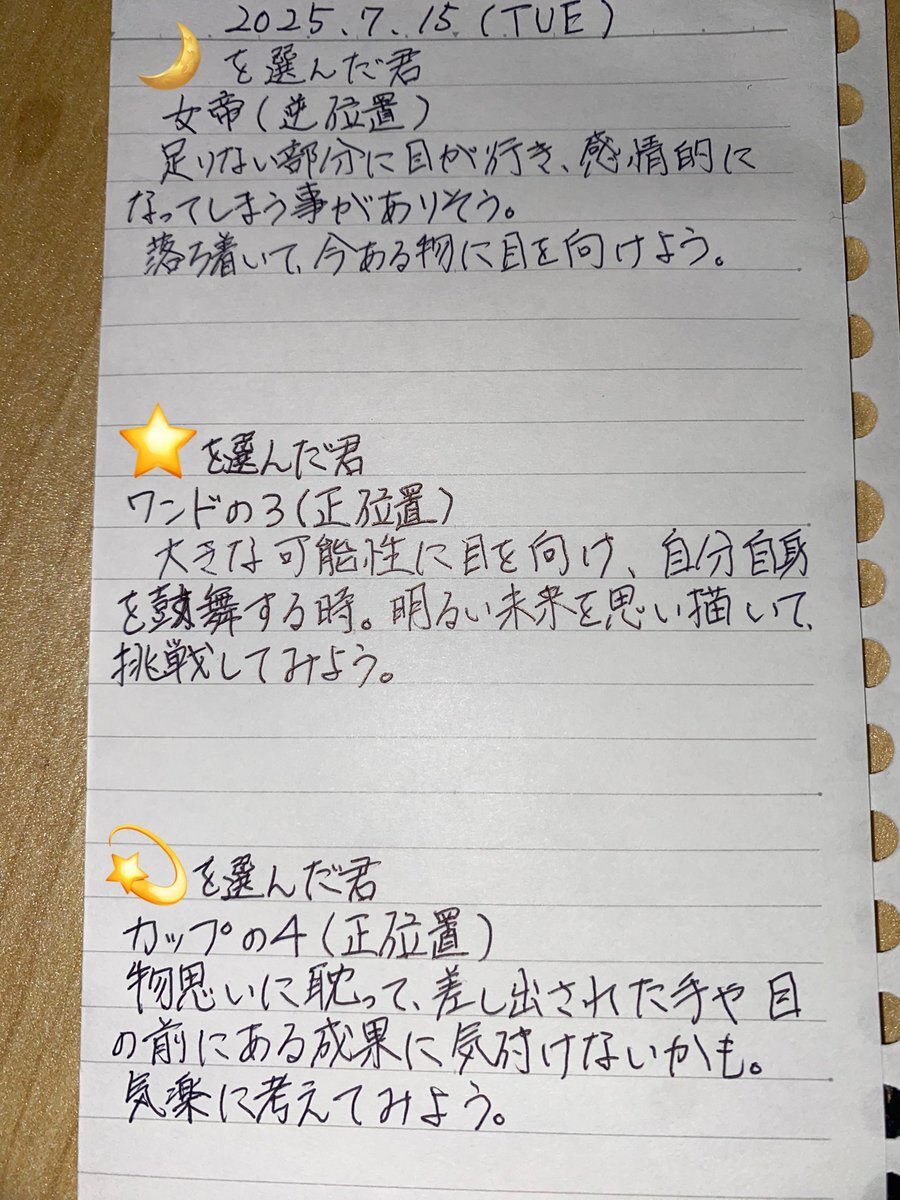 2025.7.15(TUE)
🌙を選んだ君
女帝(逆位置)
足りない部分に目が行き、感情的に
なってしまう事がありそう。
落ち着いて、今ある物に目を向けよう。
⭐を選んだ君
ワンドの3(正位置)
大きな可能性に目を向け、自分自身
を鼓舞する時。明るい未来を思い描いて、
挑戦してみよう。
💫を選んだ君
カップの4(正位置)
物思いに耽って、差し出された手や目
の前にある成果に気付けないかも。
気楽に考えてみよう。